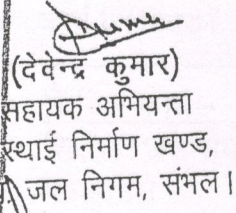 (देवेन्द्र कुमार)
सहायक अभियन्ता
स्थाई निर्माण खण्ड,
जल निगम, संभल।